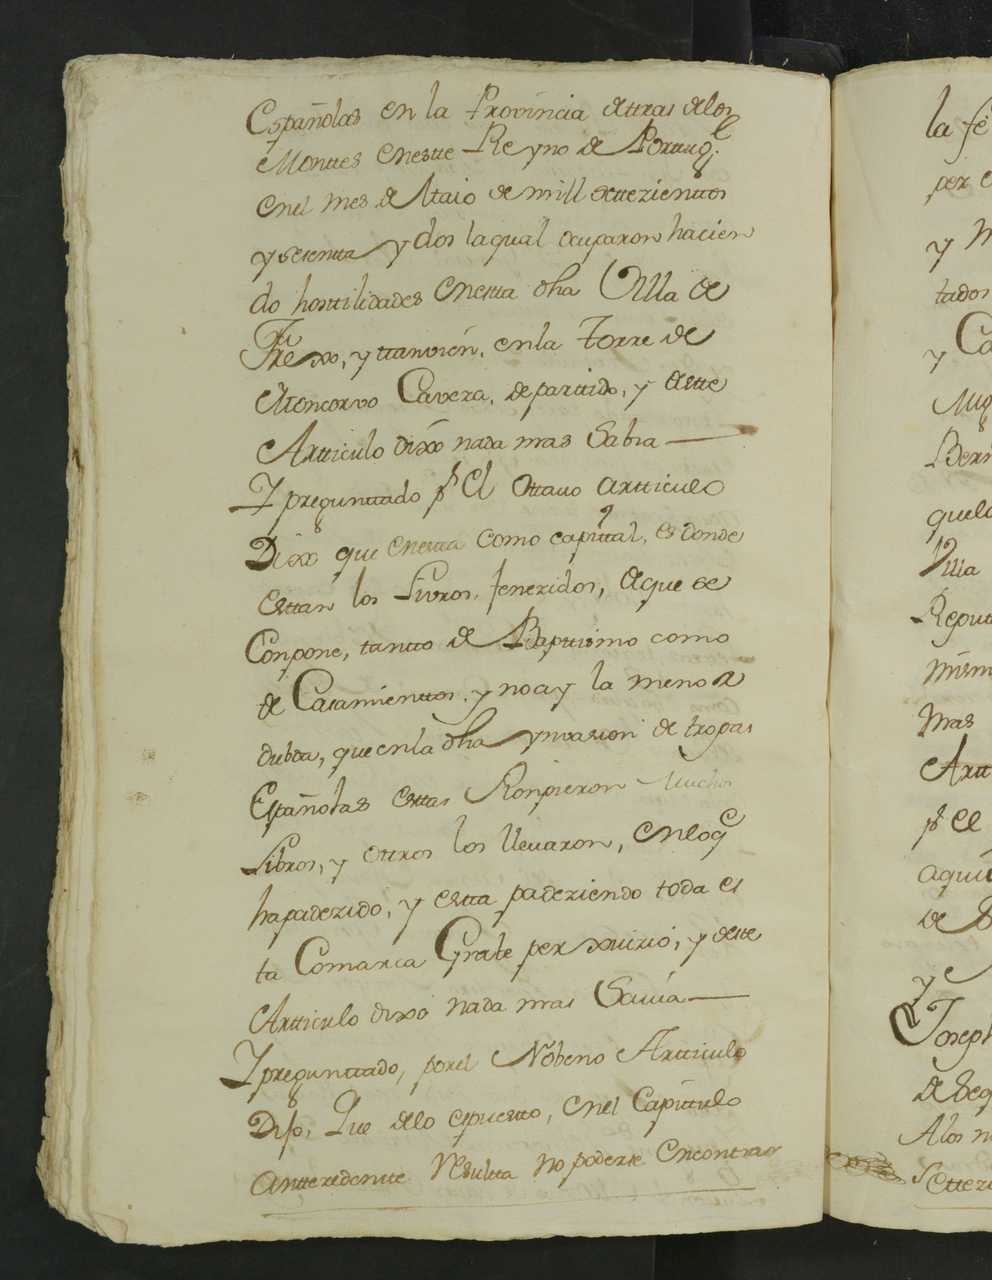 Españolas en la Provincia detras delos
Monttes enestte Reyno de Portugl.
enel mes de Maio de mill settezienttos
y setentta y dos laqual ocuparon hacien
do hostilidades enesta dha Villa de
Frexo, y ttanvien, enla Torre de
Moncorvo Cavera, departtido, y deste
Artticulo dixo nada mas Sabia
Y preguntado pr El Ottavo artticulo
Dixo que enesta como capittal, es donde
esttan los Livros, feneridos, deque se
Conpone, tantto de Bapttismo como
de Casamienttos, y noay la menor
dubda, que enla dha ynvasion de tropas
Españolas esttas Ronpieron Muchos
Libros, y ottros los llevaron, enloqe
hapaderido, y estta paderiendo toda es
ta Comarca Grabe perxuicio, y deste
Artticulo dixo nada mas Savia
Y preguntado, porel Nobeno Artticulo
Dijo, Que delo espuesto, enel Capittulo
Antteredentte Resultta no poderse encontrar
la fe
per
y M
tados
y Ca
Mig
Bern
quela
Villa
Reput
mism
mas
Artt
pr el
aqui
de
y
Joseph
de seg
Alos n
Settezi